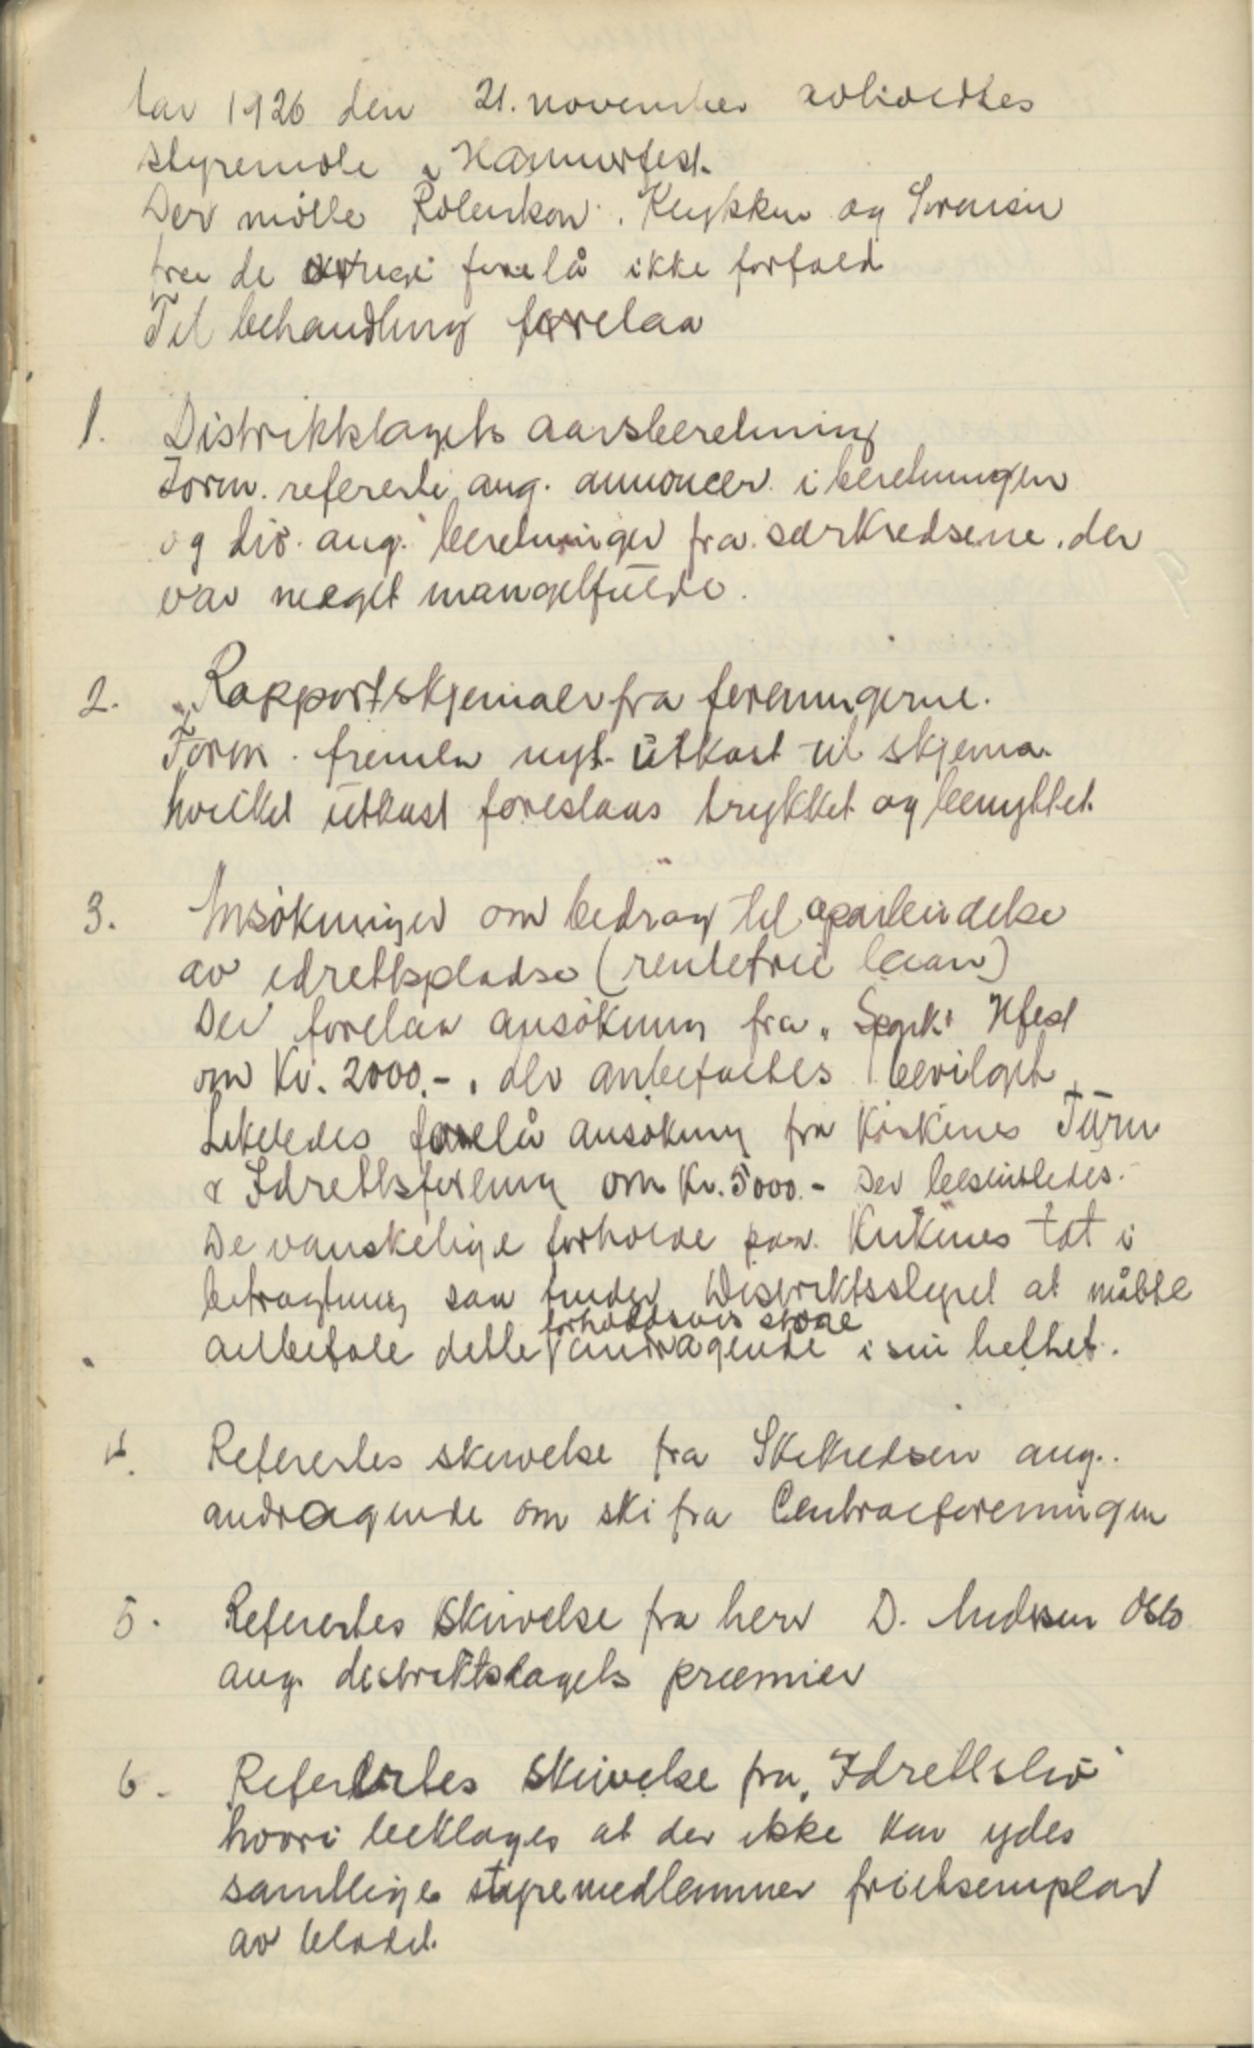 Aar 1926 den 21. november avholdtes
styremöte i Hammerfest.
Der mötte Rölenkov, Krykken og Sörensen
fra de övrige forelå ikke forfald
Til behandling forelaa
1. Distriktslagets aarsberetning
Form. refererte ang. annoncer i beretningen
og div. ang. beretninger fra særkredsene, der
var meget mangelfulde.
2. Rapportskjemaer fra foreningerne.
Form. fremla nyt utkast til skjema
hvilket utkast foreslaas trykket og benyttet.
3. Ansökninger om bedrag til oparbeidelse
av idrettspladse (rentefrie laan)
Der forelaa ansökning fra "Spark" Hfest
om Kr. 2000.-, der anbefaltes bevilget.
Likeledes forelå ansökning fra Kirkenes Turn
& Idrettsforening om Kr. 5000.- Der besluttedes:
De vanskelige forholde paa Kirkenes tat i
betragtning saa finder Distriktsstyret at måtte
anbefale dette forholdsvis store andragende i sin helhet.
4. Refereres skrivelse fra Skikredsen ang.
andragende om ski fra Centralforeningen
5. Refereres skrivelse fra herr D. Andersen Oslo
ang. distriktslagets præmier
6. Refereres skrivelse fra "Idrettsliv"
hvori beklages at der ikke kan ydes
samtlige styremedlemmer frieksemplar
av bladet.